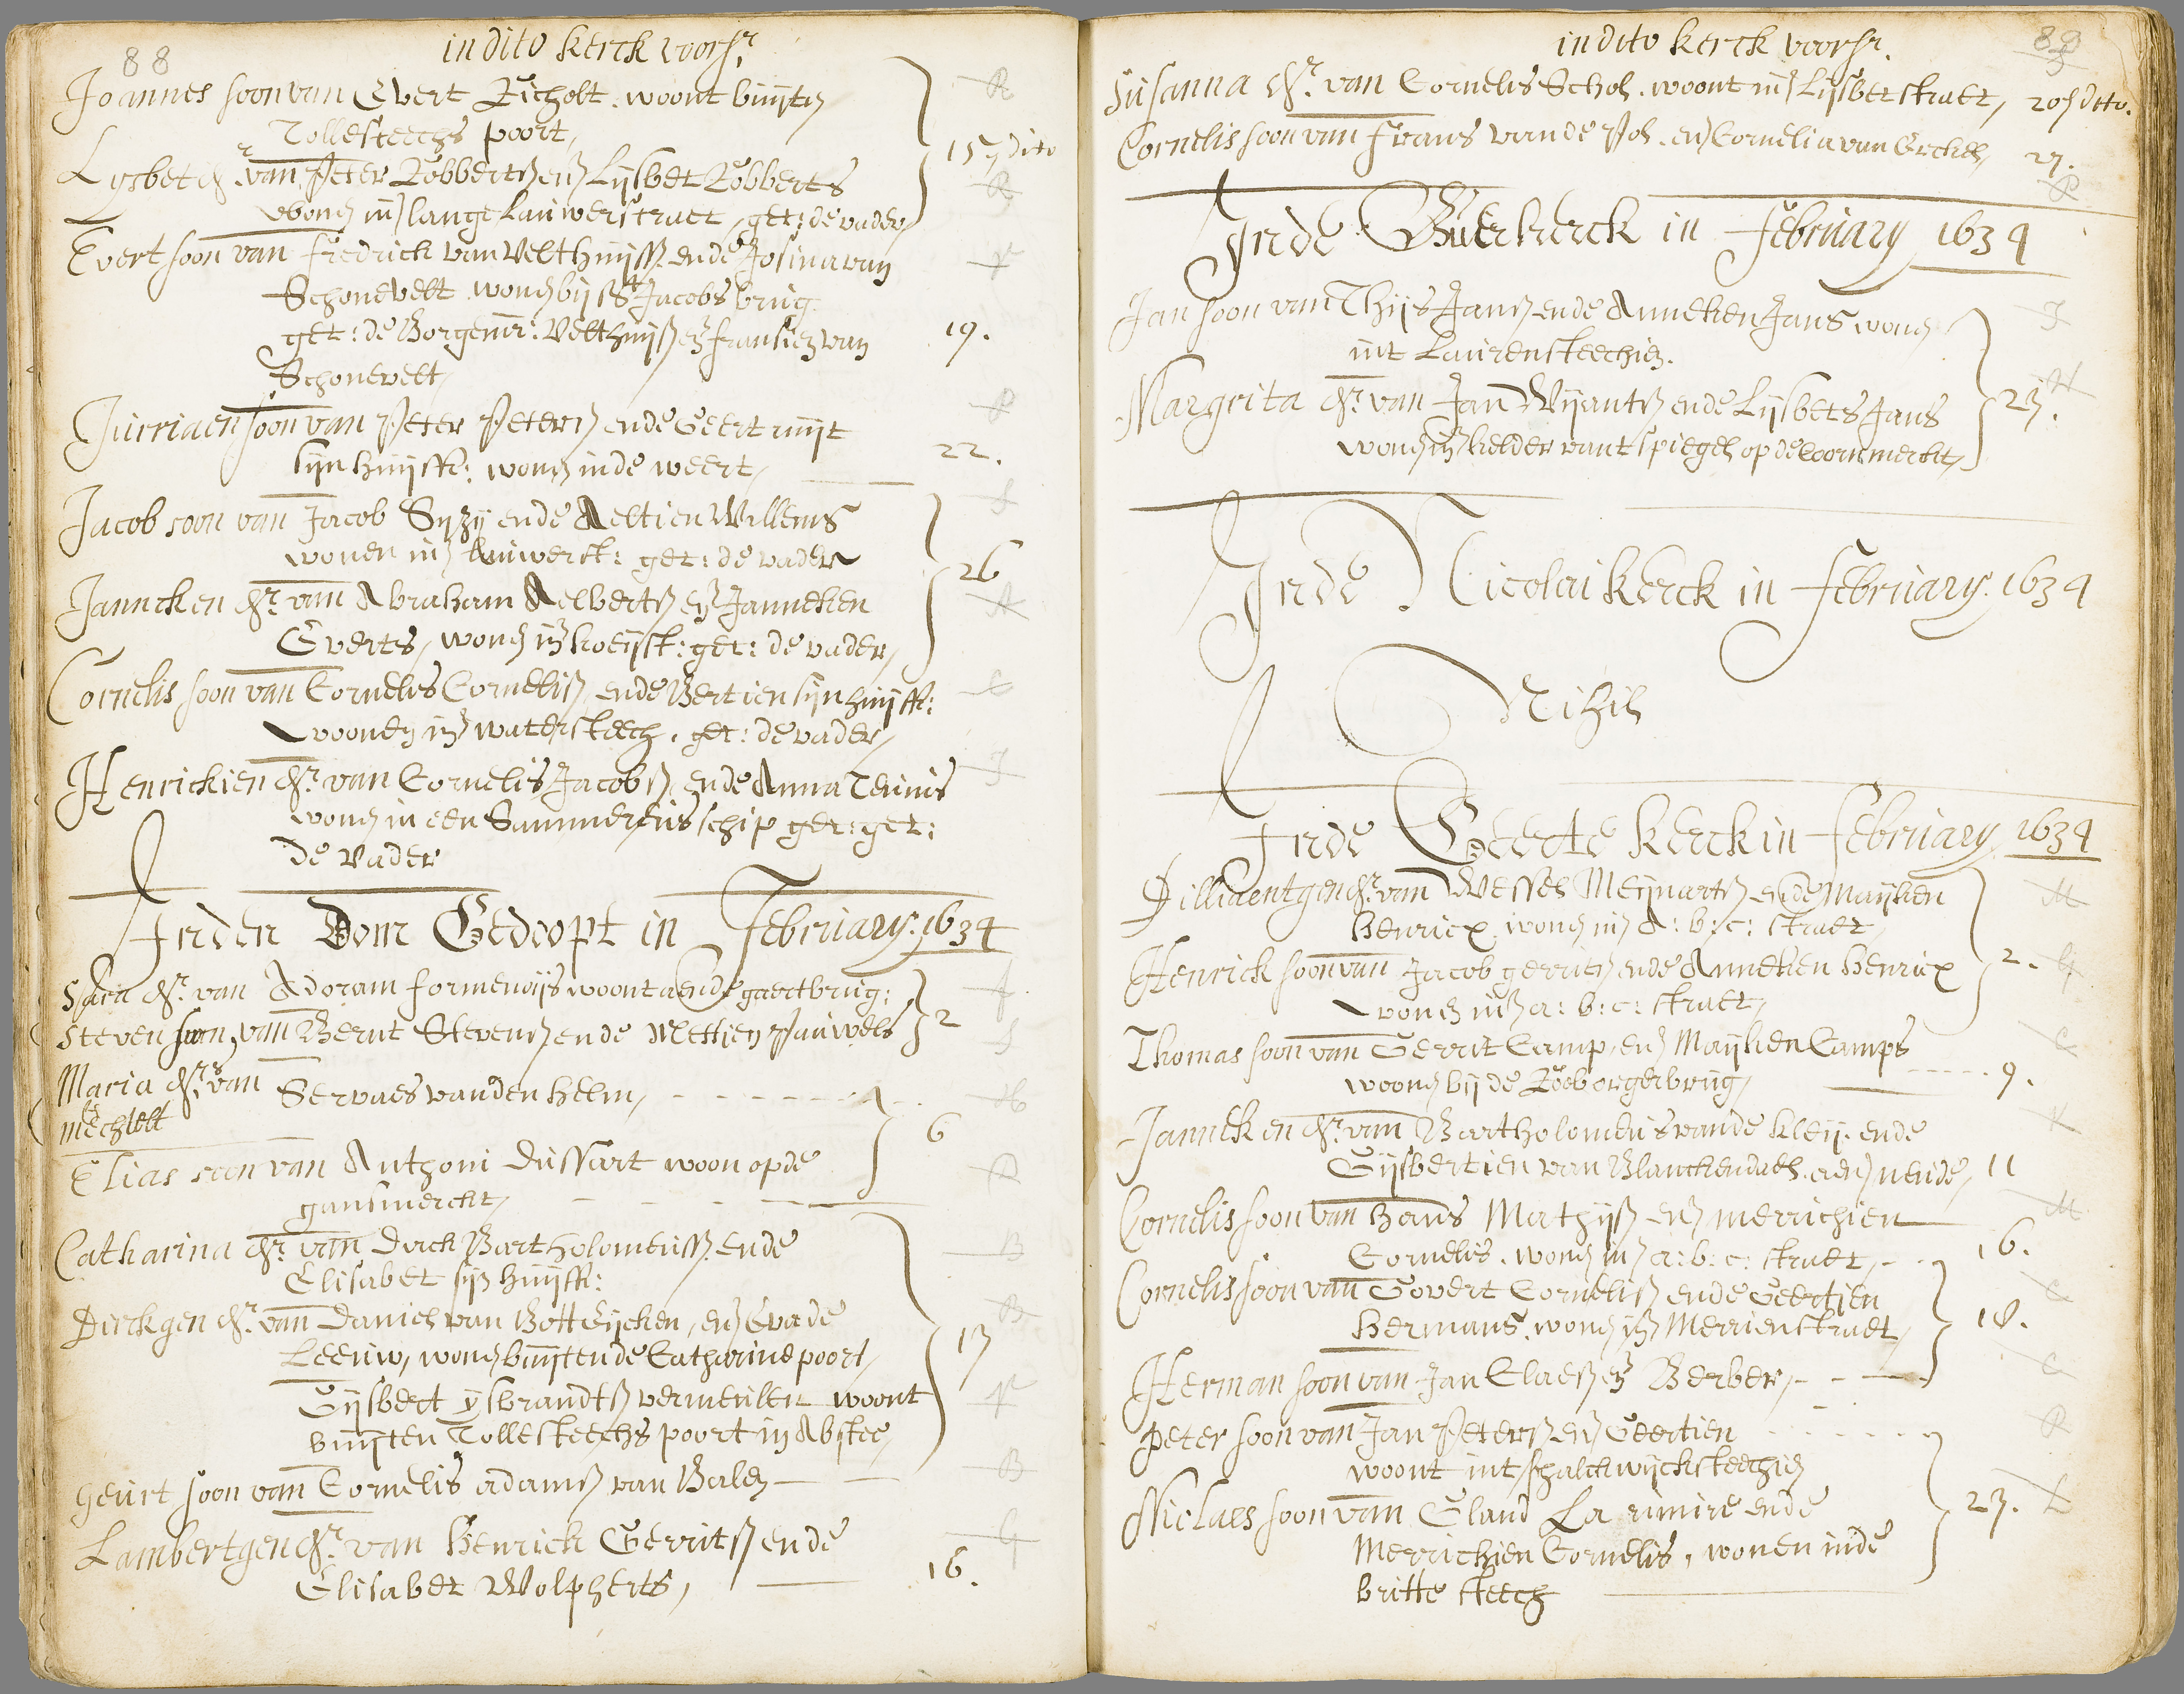 88
in dito kerck voorsr.
Joannes soon van Evert Richolt. woont buijten R
Tollesteechs poort,
15 dito
Lysbet dr. van Peter Robbertsz en Lijsbet Robberts R
wonen in lange Lauwerstraet, get: de vader
Evert soon van Fredrick van Velthuijss. ende Josina van V
Schonevelt wonen bij St Jacobs brug
get: de Borgemr: Velthuijsz en fransien van 19.
Schonevelt,
Jurriaen soon van Peter Petersz ende Geert uijt P
sijn huijsfr: wonen inde weert, 22.
Jacob soon van Jacob Syzij ende Aeltien Willems S
wonen in Lauwerst: get: de vader
26
Janneken dr. van Abraham Aelbertsz en Janneken A
Everts, wonen in koeijst: get: de vader,
Cornelis soon van Cornelis Cornelisz, ende Bertien sijn huijsfr: C
woonen in watersteech. get: de vader,
Henrickien dr. van Cornelis Jacobsz, ende Anna Teunis J
wonen in een Sammereus schip get: get:
de vader
Inden Dom Gedoopt in February. 1634
Sara dr. van Adoram formenoijs woont aende gaertbrug: F
Steven soon, van Bernt Stevensz ende Mettjen Pauwels 2 S
Maria drs. van Servaes vanden Helm, H
en
Mechtelt
6
Elias soon van Anthoni Dussart woon opde D
gansmerckt,
Catharina dr. van Dirck Bartholomeussz. ende B
Elisabet sijn huijsfr:
Dirckgen dr. van Daniel van Bott Eijcken, en Eva de B
Leeuw, wonen buijten de Catharine poort, 13
Gijsbert ysbrandtsz vermeulen woont V
buijten Tollesteechs poort in Abstee,
Geurt soon van Cornelis adamsz van Balen B
Lambertgen dr. van Henrick Gerritsz ende G
Elisabet Wolpherts, 16.
in dito kerck voorsr. 89
Susanna dr. van Cornelis Schol. woont in Lijsbetstraet, 20 dito. S
Cornelis soon van Frans vande Pol. en Cornelia van Erckel, 27. P
Inde Buerkerck in February 1634
Jan soon van Thijs Jansz ende Anneken Jans wonen J
int Laurensteechien.
Margrita dr. van Jan Wijantsz ende Lijsbets Jans 23. W
wonen in kelder vant spiegel op de Coornmerckt,
Inde Nicolai kerck in February. 1634
Nihil
Inde Geerte kerck in February. 1634
Dilliaentgen dr. van Wessel Meijnartsz ende Maijken M
Henricx. wonen in A: b: c: straet,
Henrick soon van Jacob gerritsz ende Anneken Henricx 2. G
wonen in a: b: c: straet,
Thomas soon van Gerrit Camp, en Maijken Camps C
woonen bij de Rooborgerbrug, 9.
Janneken dr. van Bartholomeus vande Kleij. ende K
Gijsbertien van Blanckendael. aen neude, 11
Cornelis soon van Hans Mathijsz en Merrichien M
Cornelis. wonen in a: b: c: straet, 16.
Cornelis soon van Govert Cornelisz ende Geertien C
Hermans. wonen in Merrienstraet, 18.
Herman soon van Jan Claesz en Berber, C
Peter soon van Jan Petersz en Geertien P
woont int schalckwijcksteechien
Niclaes soon van Gland La rimire ende 23. L
Merrichien Cornelis, wonen inde
britte steech